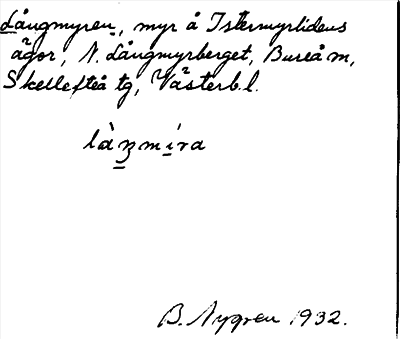 Långmyren, myr å Istermyrlidens
ägor, N. Långmyrberget, Bureå m,
Skellefteå tg, Västerb.l.
làŋmíra
B. Nygren 1932.